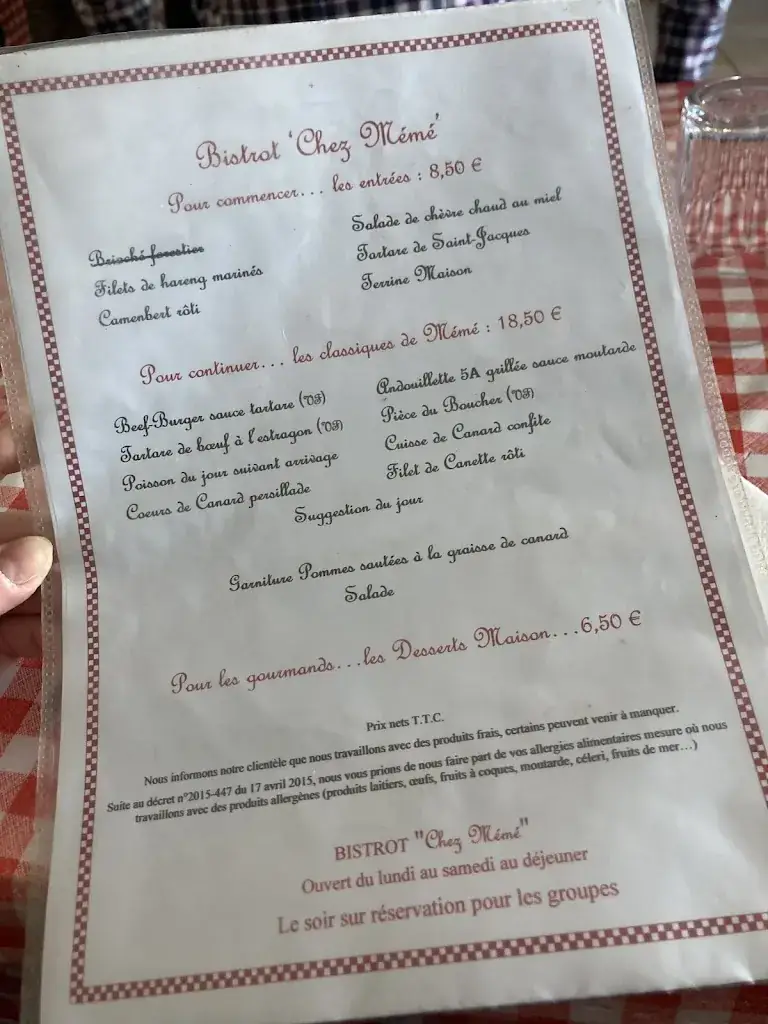 Bistrot 'Chez Mémé'
Pour commencer... les entrées : 8,50 €
Brioché forestier
Filets de hareng marinés
Camenbert rôti
Salade de chèvre chaud au miel
Tartare de Saint-Jacques
Terrine Maison
Pour continuer... les classiques de Mémé : 18,50 €
Beef-Burger sauce tartare (VF)
Tartare de bœuf à l'estragon (VF)
Poisson du jour suivant arrivage
Coeurs de Canard persillade
Andouillette 5A grillée sauce moutarde
Pièce du Boucher (VF)
Cuisse de Canard confite
Filet de Canette rôti
Suggestion du jour
Garniture Pommes sautées à la graisse de canard
Salade
Pour les gourmands...les Desserts Maison...6,50 €
Prix nets T.T.C.
Nous informons notre clientèle que nous travaillons avec des produits frais, certains peuvent venir à manquer.
Suite au décret n°2015-447 du 17 avril 2015, nous vous prions de nous faire part de vos allergies alimentaires mesure où nous
travaillons avec des produits allergènes (produits laitiers, œufs, fruits à coques, moutarde, céleri, fruits de mer…)
BISTROT "Chez Mémé"
Ouvert du lundi au samedi au déjeuner
Le soir sur réservation pour les groupes